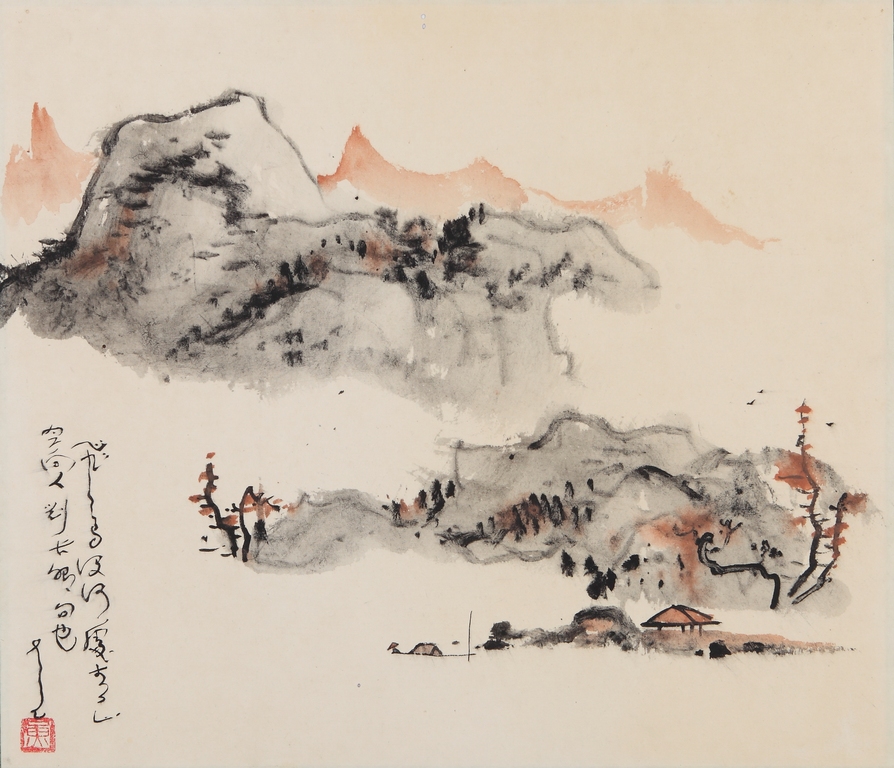 飛鳥没何處青山
空向人劉長卿句也